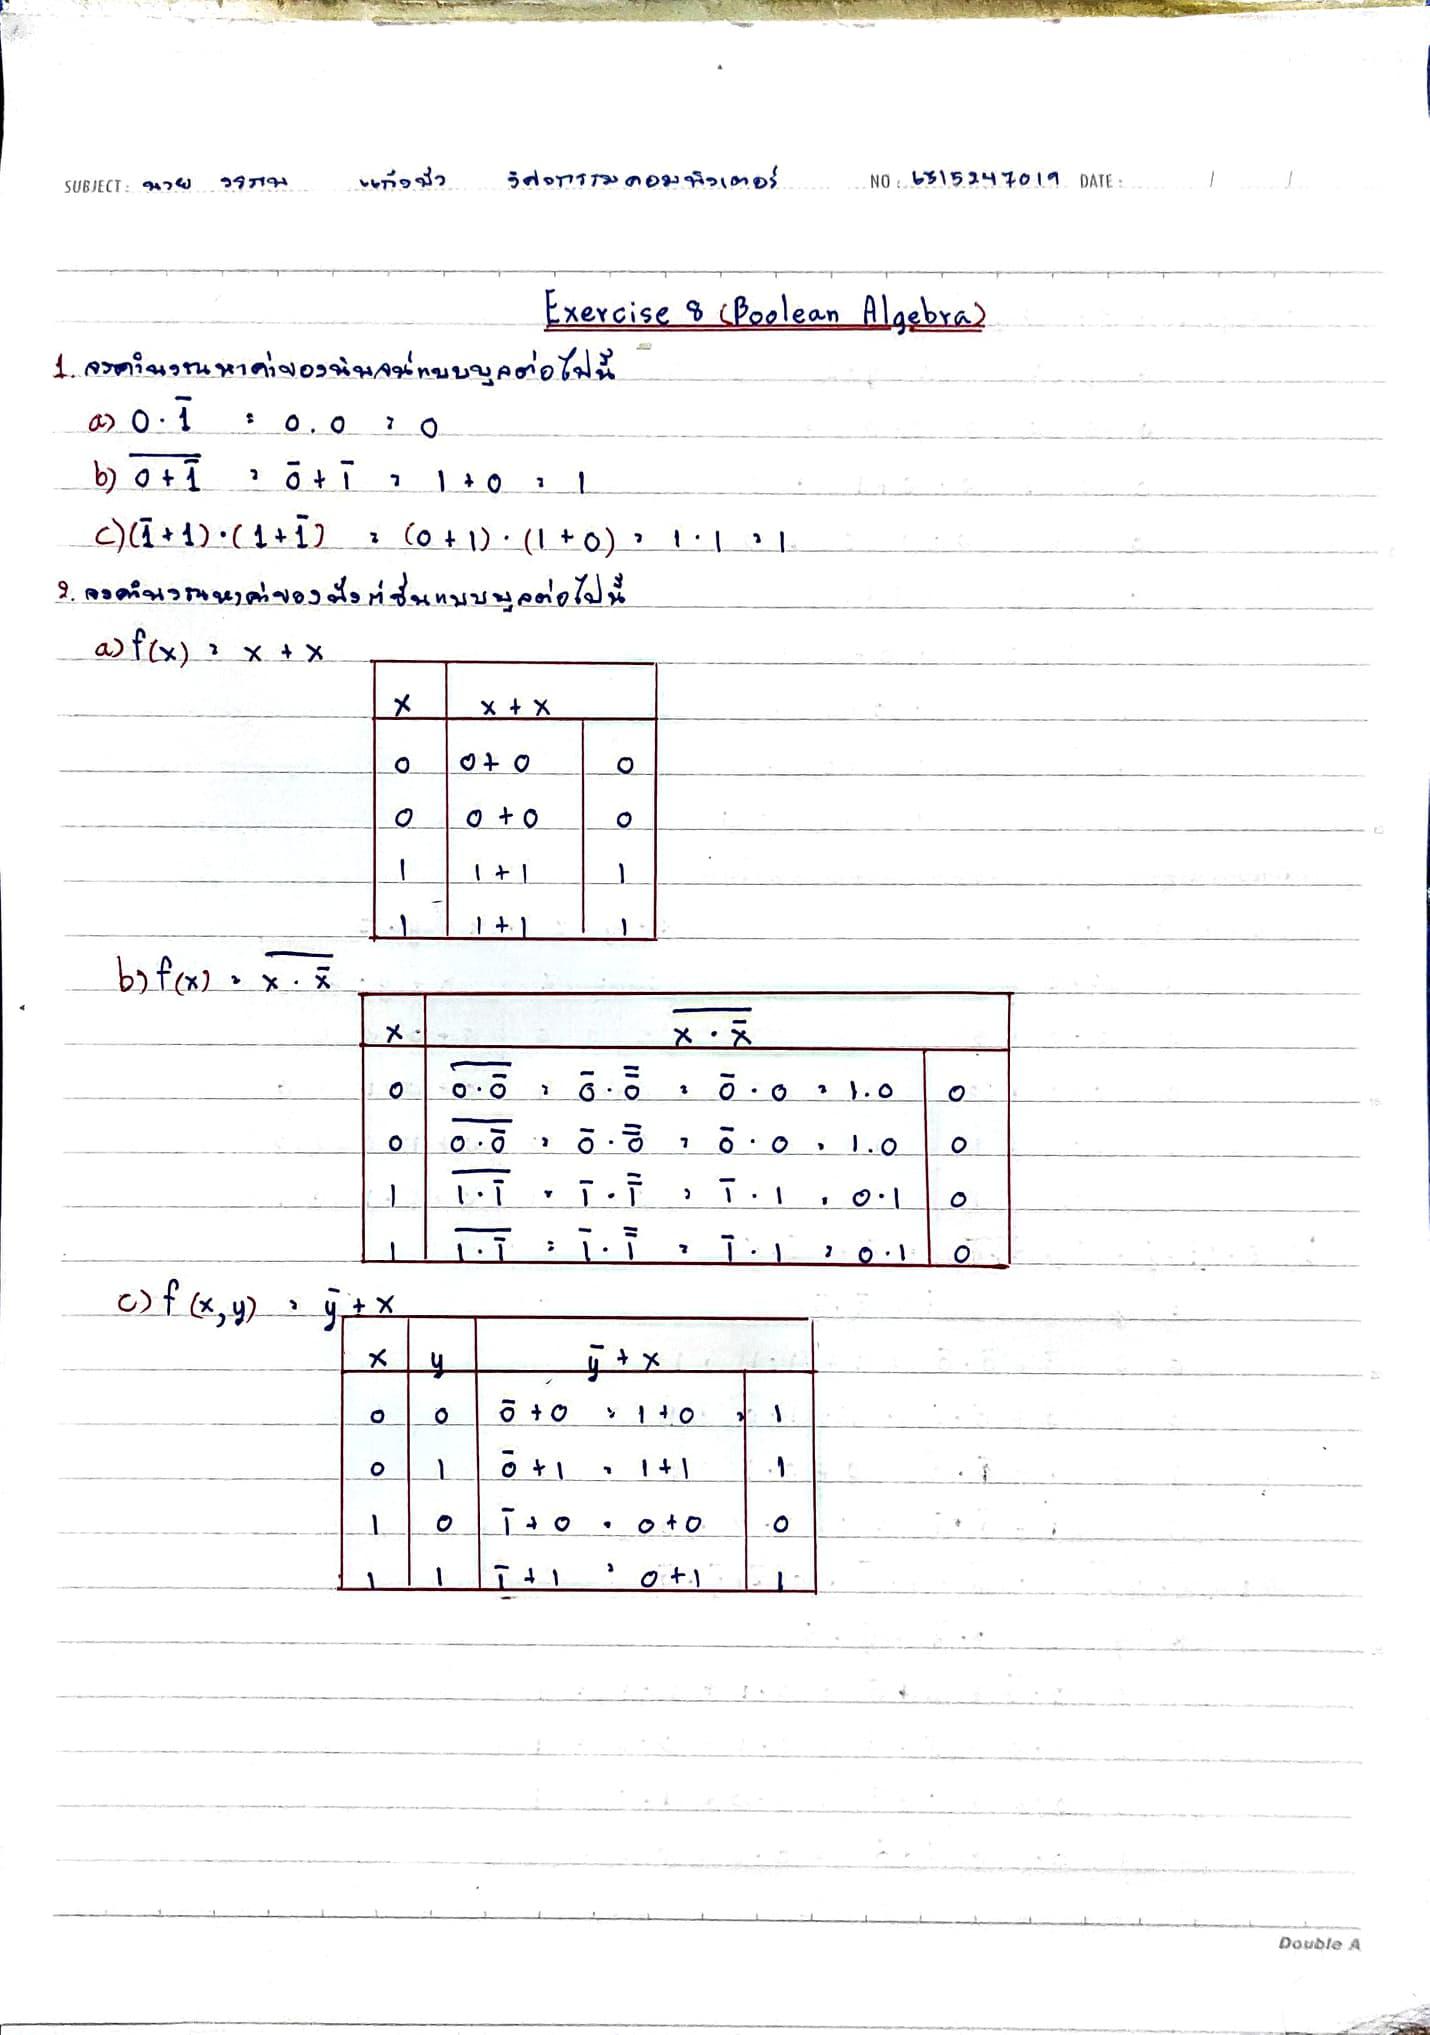 SUBJECT: นาย วรภพ แก้วบัว วิศวกรรมคอมพิวเตอร์ NO: 6515247019 DATE: / /
Exercise 8 (Boolean Algebra)
1. จงคำนวณหาค่าของนิพจน์แบบบูลต่อไปนี้
a) 0 · 1̅ = 0.0 = 0
b) \overline{0 + 1̅} = 0̅ + 1̅ = 1 + 0 = 1
c) (1̅ + 1) · (1 + 1̅) = (0 + 1) · (1 + 0) = 1 · 1 = 1
2. จงคำนวณหาค่าของฟังก์ชั่นแบบบูลต่อไปนี้
a) f(x) = x + x
x x + x
0 0 + 0 0
0 0 + 0 0
1 1 + 1 1
1 1 + 1 1
b) f(x) = \overline{x · x̿}
x \overline{x · x̿}
0 \overline{0 · 0̿} = 0̅ · 0̿̅ = 0̅ · 0 = 1.0 0
0 \overline{0 · 0̿} = 0̅ · 0̿̅ = 0̅ · 0 = 1.0 0
1 \overline{1 · 1̅} = 1̅ · 1̿ = 1̅ · 1 = 0 · 1 0
1 \overline{1 · 1̅} = 1̅ · 1̿ = 1̅ · 1 = 0 · 1 0
c) f(x,y) = y̅ + x
x y y̅ + x
0 0 0̅ + 0 = 1 + 0 = 1
0 1 0̅ + 1 = 1 + 1 1
1 0 1̅ + 0 = 0 + 0 0
1 1 1̅ + 1 = 0 + 1 1
Double A